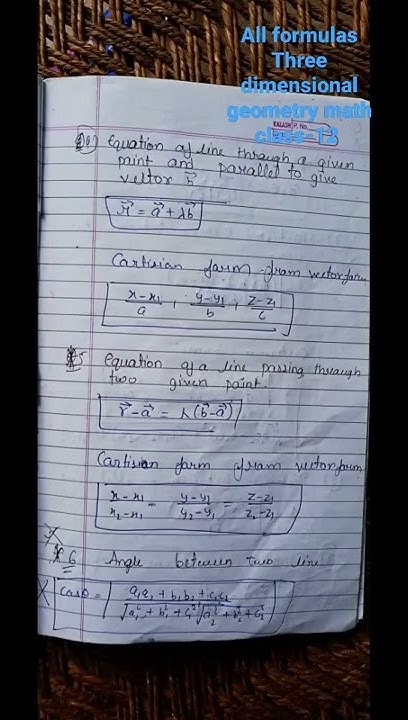 All formulas
Three
dimensional
geometry math
class-12
Equation of line through a given
point and parallel to give
vector b⃗
r⃗ = a⃗ + λb⃗
Cartisian form from vector form
x-x₁/a , y-y₁/b , z-z₁/c
5
Equation of a line passing through
two given point
r⃗ - a⃗ = λ(b⃗ - a⃗)
Cartisian form from vector form
x-x₁/x₂-x₁ = y-y₁/y₂-y₁ = z-z₁/z₂-z₁
6 Angle between two line
cosθ = a₁a₂ + b₁b₂ + c₁c₂/√a₁² + b₁² + c₁² √a₂² + b₂² + c₂²